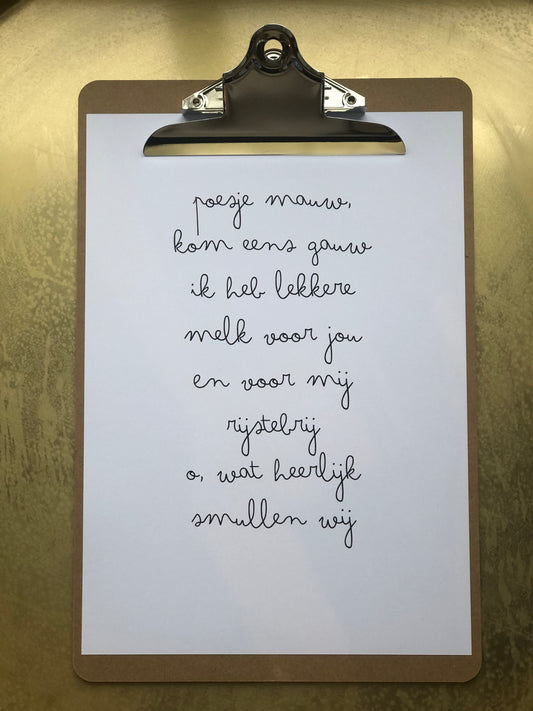 poesje mauw,
kom eens gauw
ik heb lekkere
melk voor jou
en voor mij
rijstebrij
o, wat heerlijk
smullen wij